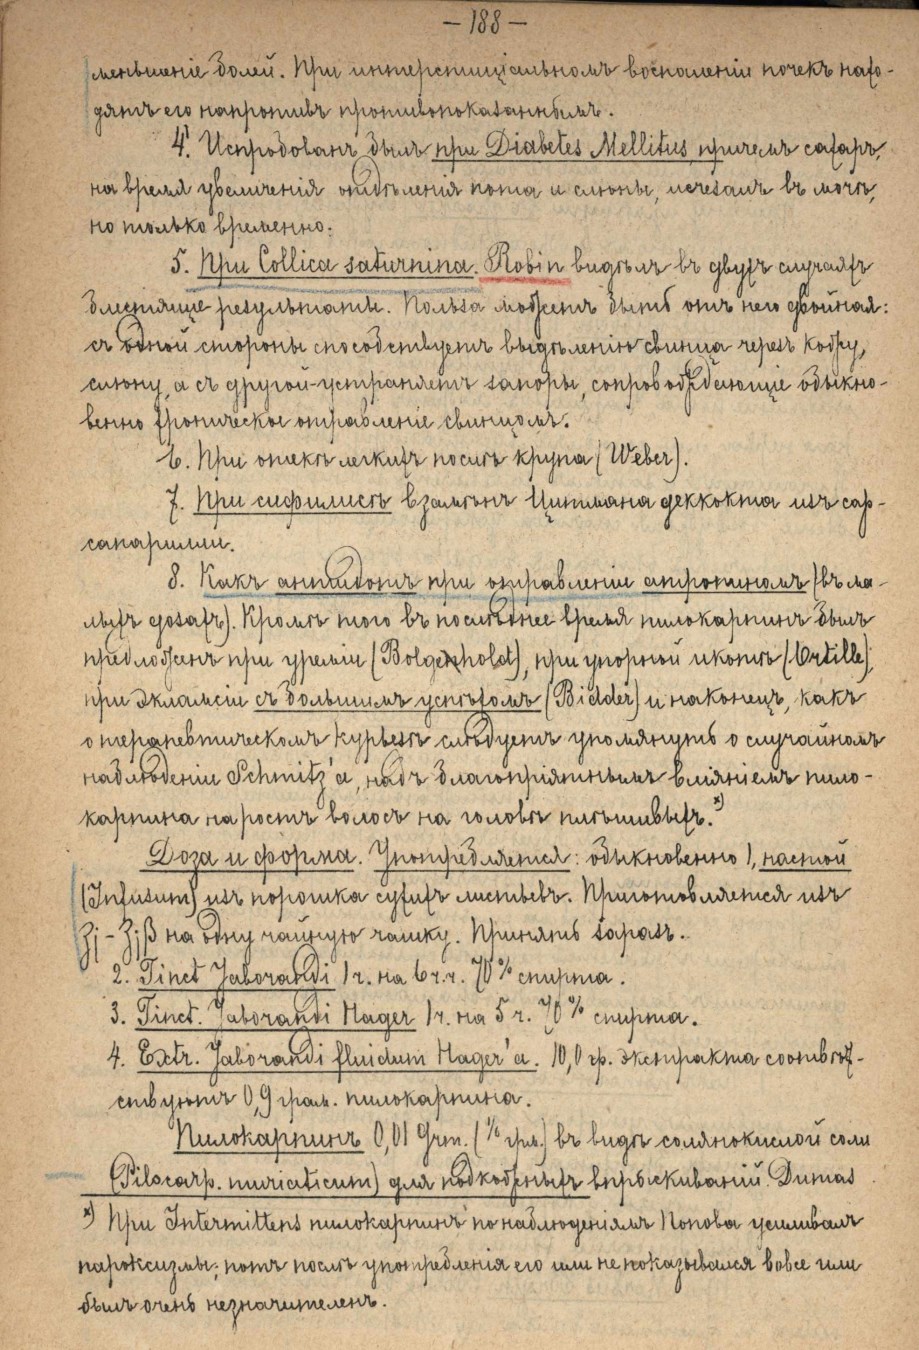 — 188 —
меньшеніе болей. При интерстиціальномъ воспаленіи почекъ нахо-
дятъ его напротивъ противопоказаннымъ.
4. Испробованъ былъ при Diabetes Mellitus, причемъ сахаръ,
на время увеличенія отдѣленія пота и слюны, исчезалъ въ мочѣ,
но только временно.
5. При Collica saturnina. Robin видѣлъ въ двухъ случаяхъ
блестящіе результаты. Польза можетъ быть отъ него двойная:
съ одной стороны способствуетъ выдѣленію свинца черезъ кожу,
слюну, а съ другой-устраняетъ запоры, сопровождающіе обыкно-
венно хроническое отравленіе свинцомъ.
6. При отекѣ легкихъ послѣ крупа (Weber).
7. При сифилисѣ взамѣнъ Цитмана деккокта изъ сар-
сапарилли.
8. Какъ антидотъ при отравленіе атропиномъ (въ ма-
лыхъ дозахъ). Кромѣ того въ послѣднее время пилокарпинъ былъ
предложенъ при уреміи (Bolgenholdt), при упорной икотѣ (Ortille),
при эклампсіи съ большимъ успѣхомъ (Bidder) и наконецъ, какъ
о терапевтическомъ курьезѣ слѣдуетъ упомянуть о случайномъ
наблюденіи Schmitz'a, надъ благопріятнымъ вліяніемъ пило-
карпина на ростъ волосъ на головѣ плѣшивыхъ.*)
Доза и форма. Употребляется: обыкновенно 1, настой
(Infusum) изъ порошка сухихъ листьевъ. Приготовляется изъ
ʒj – ʒjβ на одну чайную чашку. Принять заразъ.
2. Tinct Jaborandi 1 ч. на 6 ч.ч. 70% спирта.
3. Tinct. Jaborandi Hager 1 ч. на 5 ч. 70% спирта.
4. Extr. Jaborandi fluidum Hager'a. 10,0 гр. экстракта соотвѣт-
ствуютъ 0,9 грам. пилокарпина.
Пилокарпинъ 0,01 Grm. (⅙ грм.) въ видѣ солянокислой соли
(Pilocarp. muriaticum) для подкожныхъ впрыскиваній. Dumas
*) При Intermittens пилокарпинъ по наблюденіямъ Попова усиливалъ
пароксизмы; потъ послѣ употребленія его или не показывался вовсе или
былъ очень незначителенъ.